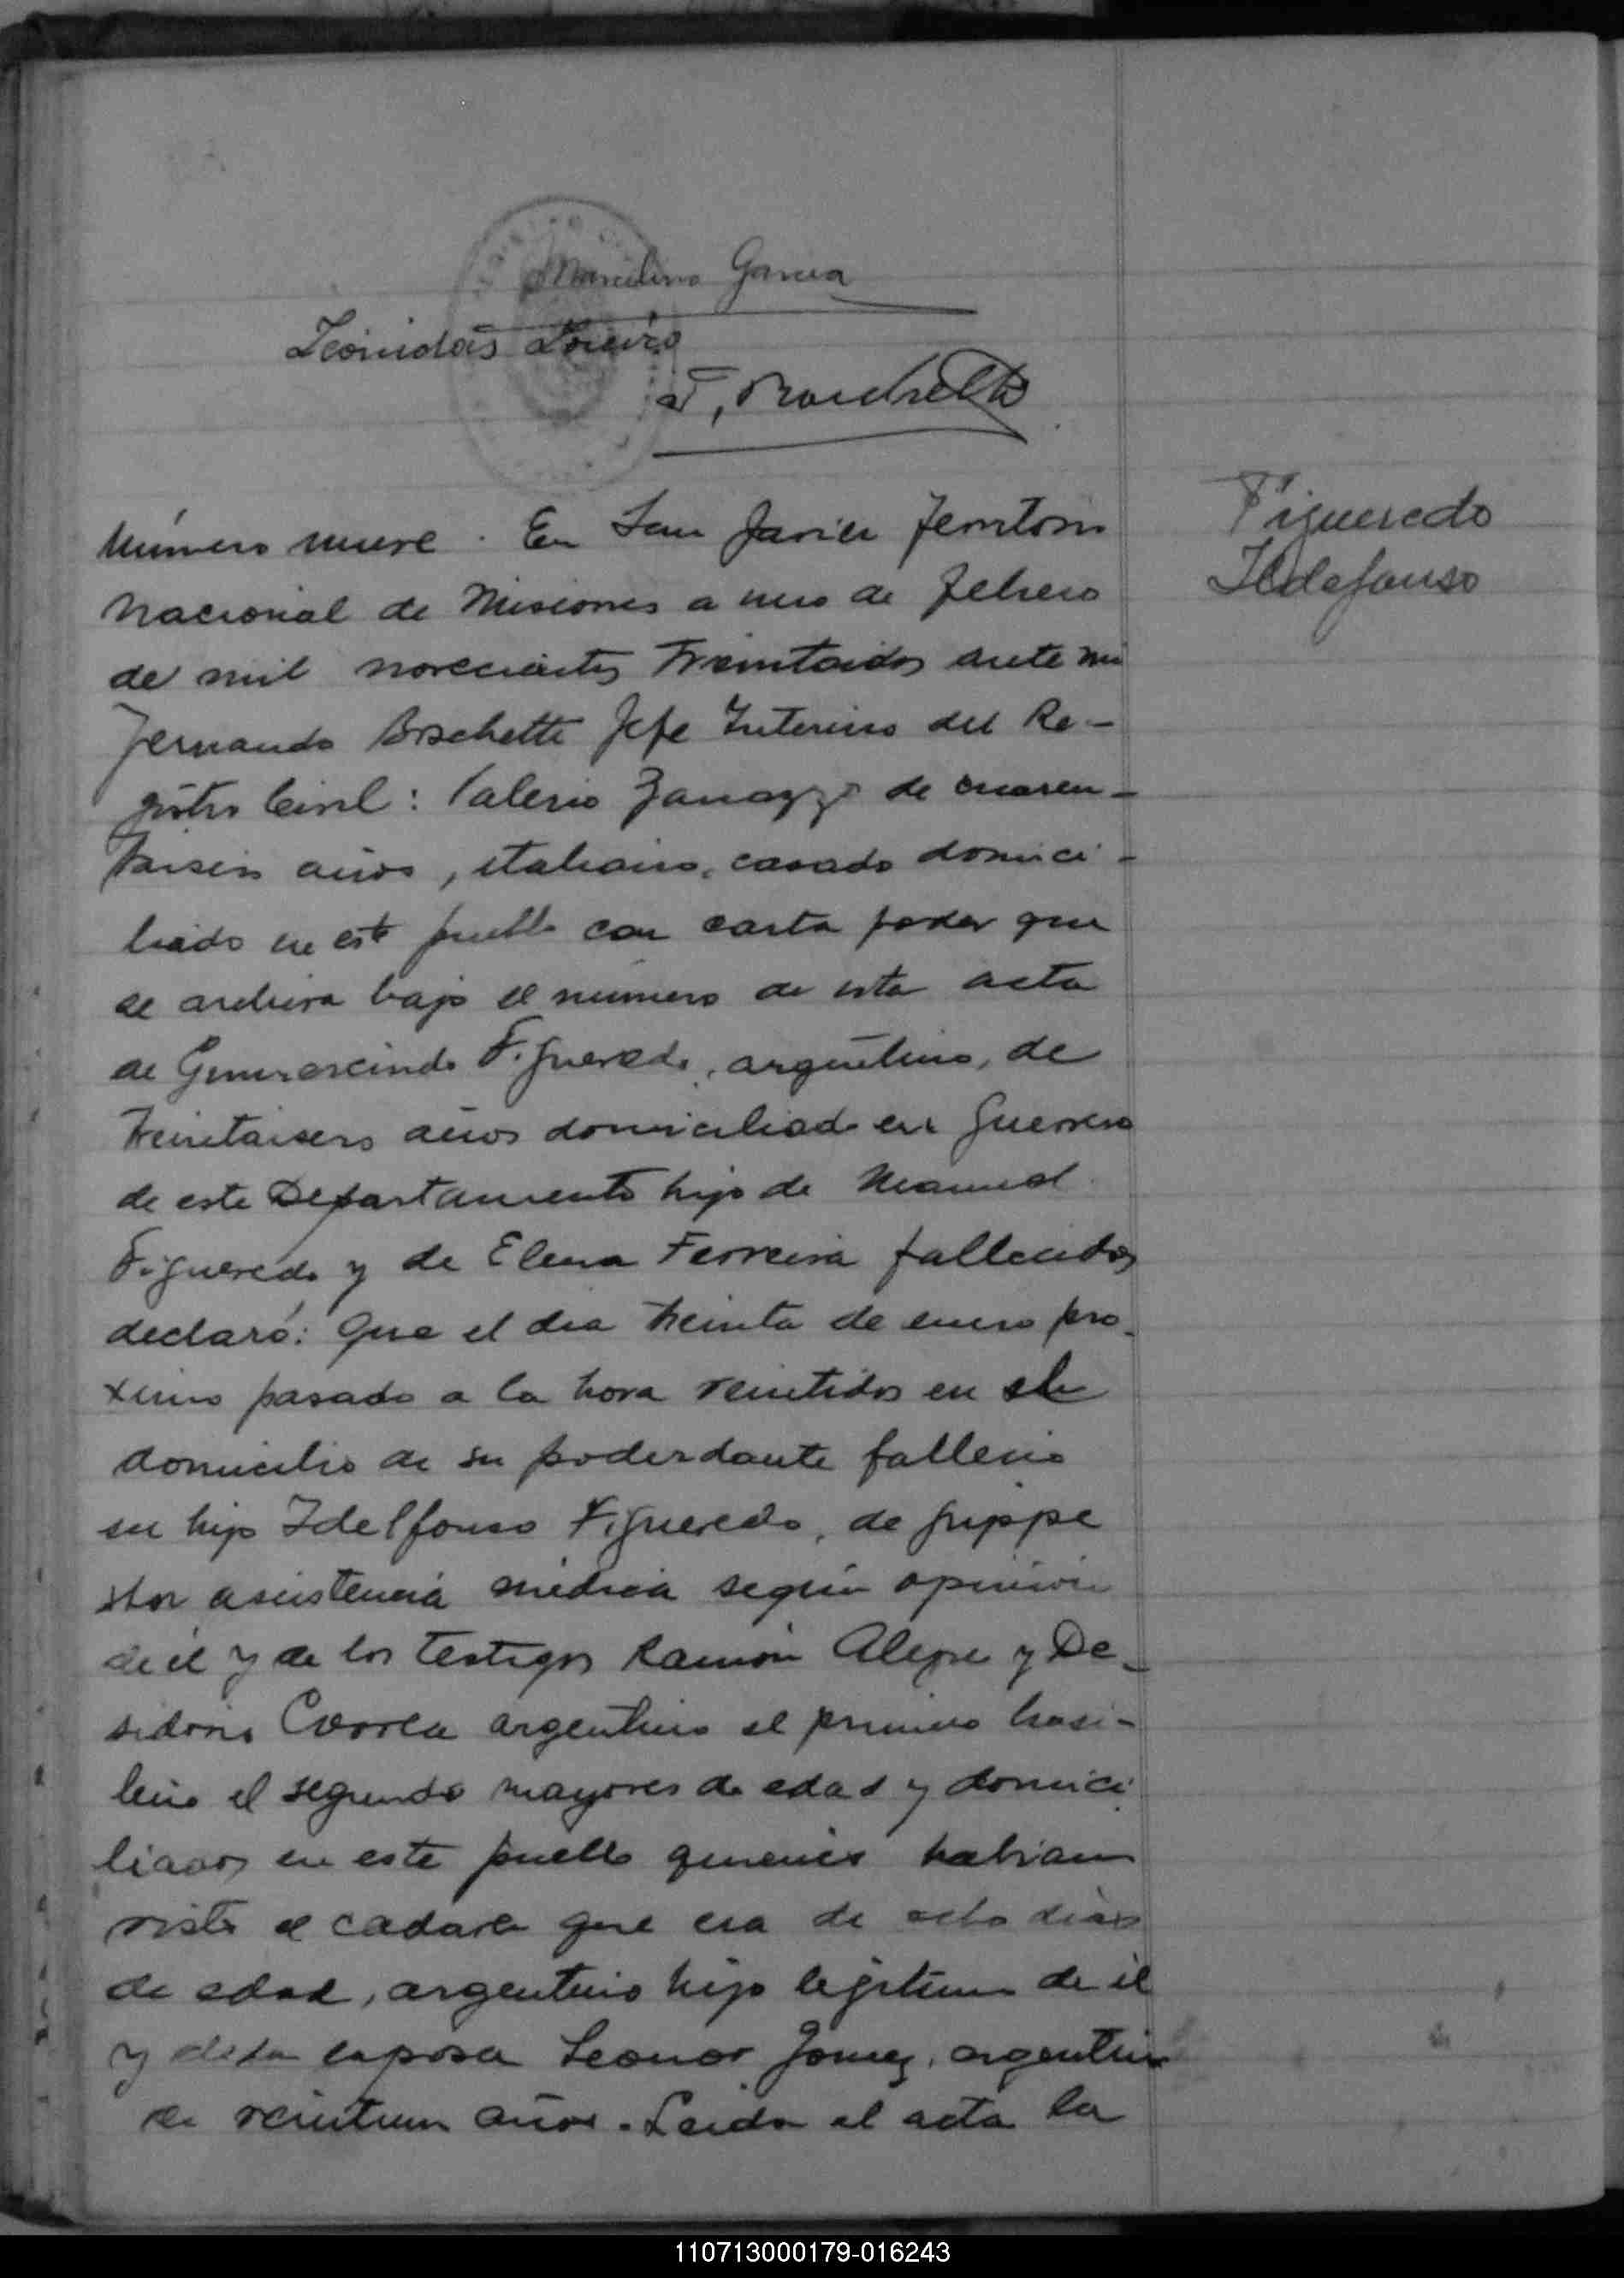 Marcelino Garcia
Leonidas Loreiro
F. Boschetti
Número nueve. En San Javier Territorio
Nacional de Misiones a uno de febrero
de mil novecientos treintaidos ante mi
Fernando Boschetti Jefe Interino del Re-
gistro Civil: Valerio Zanazzo de cuaren-
taiseis años, italiano, casado domici-
liado en este pueblo con carta poder que
se archiva bajo el número de esta acta
de Gumercindo Figueredo, argentino, de
treintaiseis años domiciliado en Guerrero
de este Departamento hijo de Manuel
Figueredo y de Elena Ferreira fallecidos
declaró: Que el dia treinta de enero pro-
ximo pasado a la hora veintidos en el
domicilio de su poderdante fallecio
su hijo Idelfonso Figueredo, de grippe
sin asistencia médica según opinión
de él y de los testigos Ramón Alegre y De-
siderio Correa argentino el primero brasi-
leño el segundo mayores de edad y domici
liados en este pueblo quienes habian
visto el cadaver que era de ocho dias
de edad, argentino hijo legítimo de él
y de su esposa Leonor Gomez, argentina
de veintiun años. Leida el acta la
Figueredo
Ildefonso
110713000179-016243